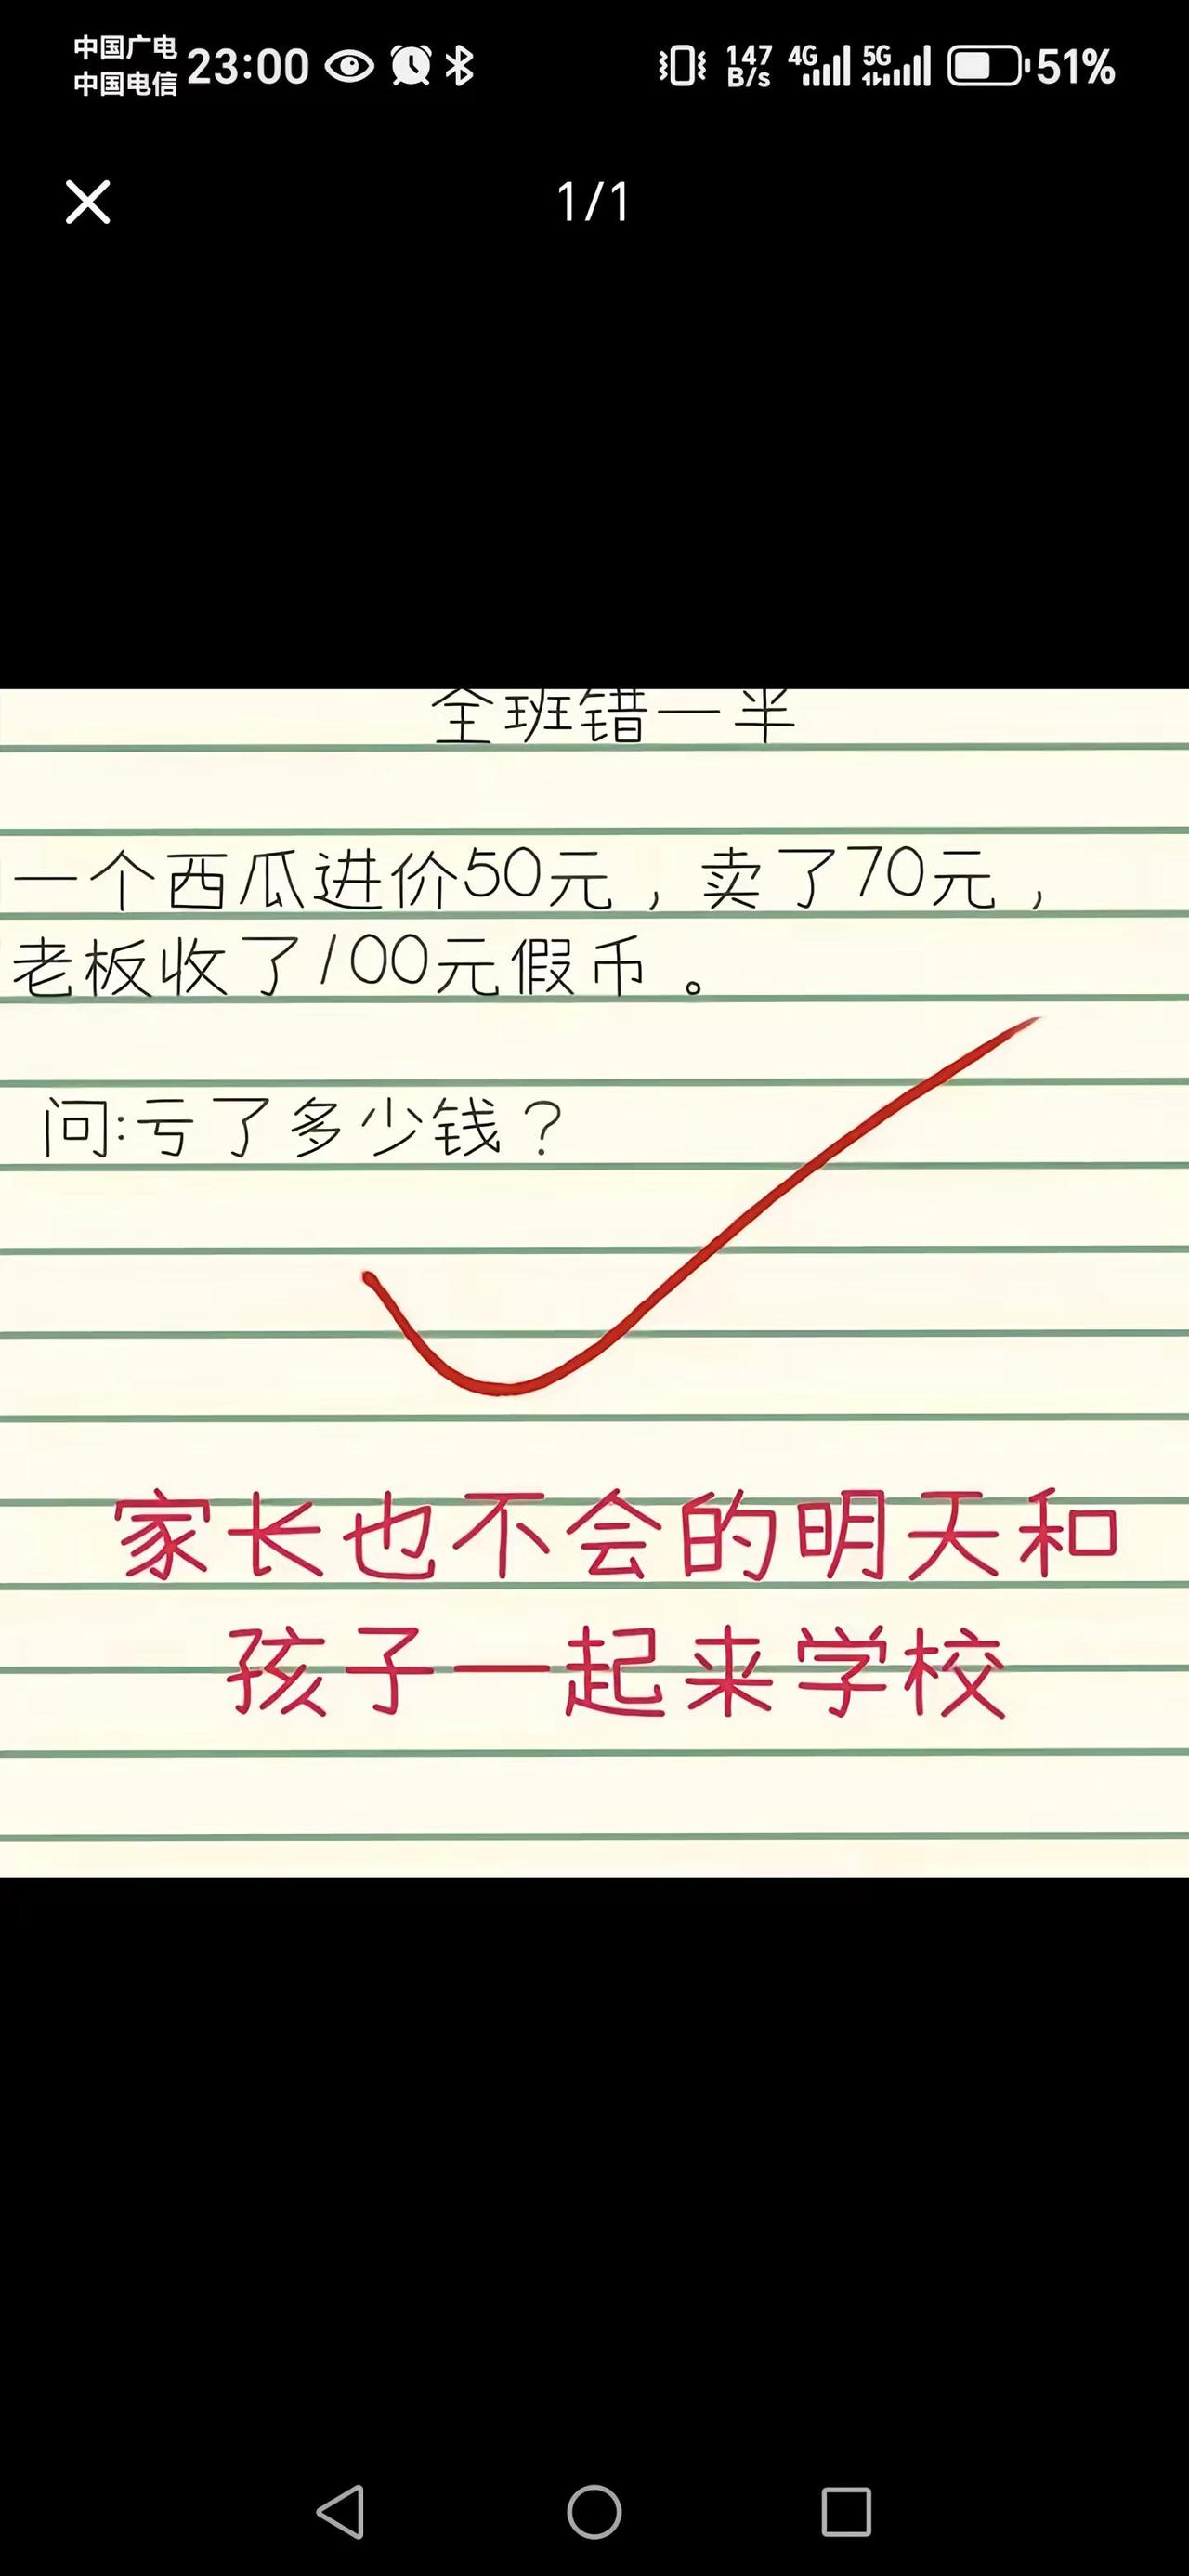 中国广电
中国电信
23:00
147 B/s
4G
5G
51%
1/1
全班错一半
一个西瓜进价50元，卖了70元，
老板收了100元假币。
问:亏了多少钱？
家长也不会的明天和
孩子一起来学校